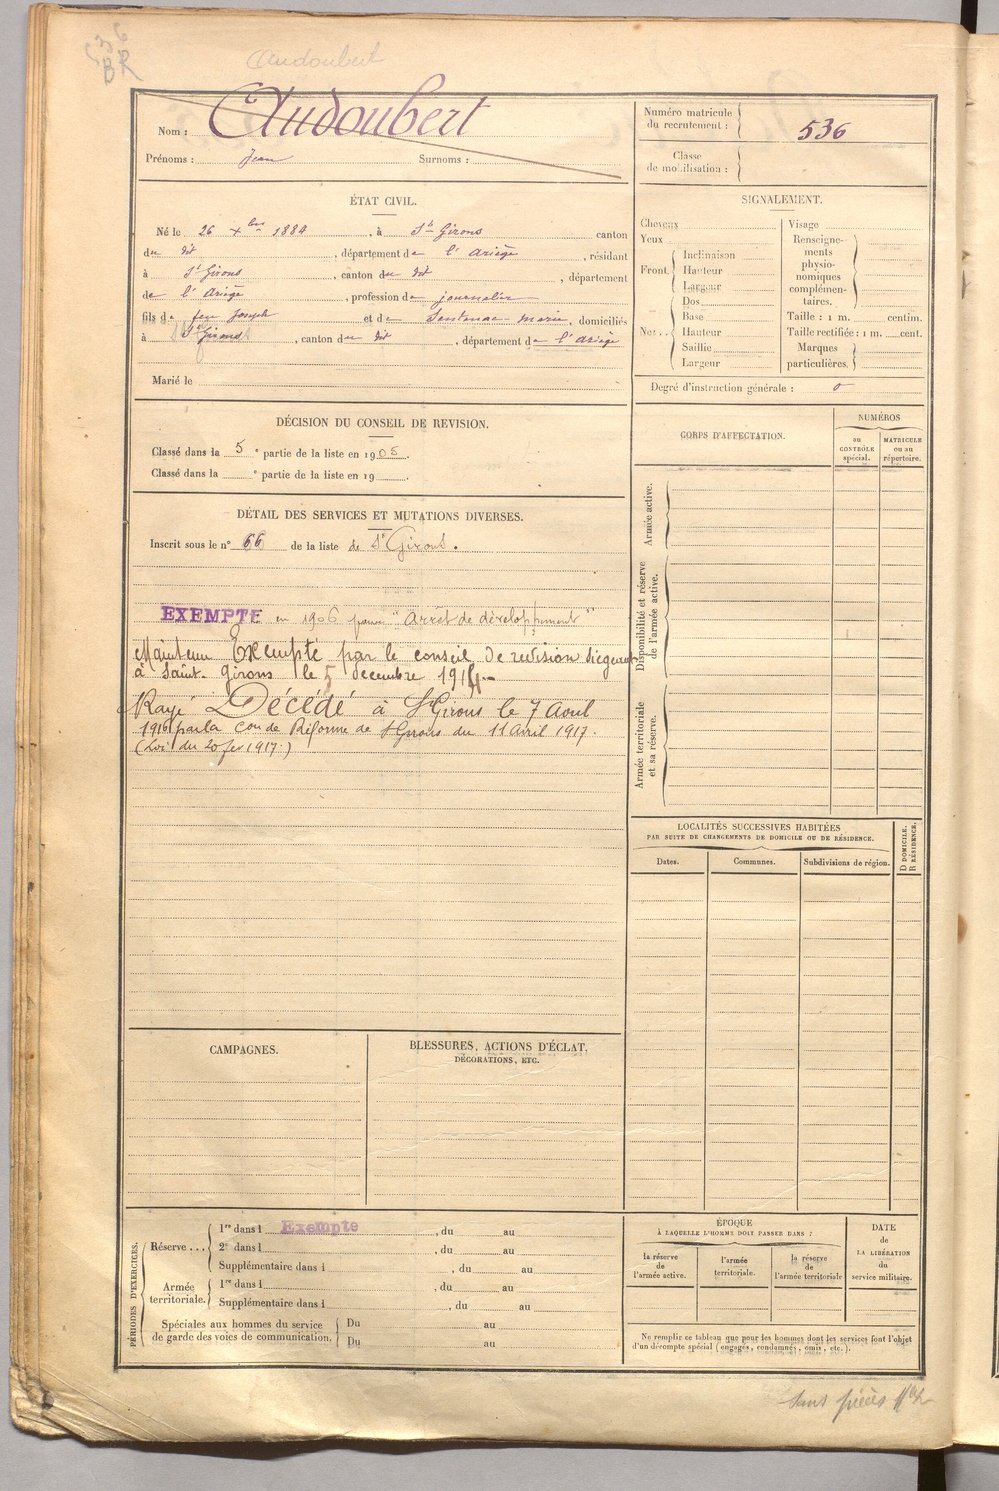 536
BR
Audoubert
Nom : Audoubert
Prénoms : Jean Surnoms :
Numéro matricule
du recrutement : 536
Classe
de mobilisation :
ÉTAT CIVIL.
Né le 26 Xbre 1884, à St Girons canton
du dit, département de l'Ariège, résidant
à St Girons, canton du dit, département
de l'Ariège, profession de journalier
fils de feu Joseph et de Sentenac Marie, domiciliés
à St Girons, canton du dit, département de l'Ariège
Marié le
SIGNALEMENT.
Cheveux
Yeux
Front. Inclinaison
Hauteur
Largeur
Nez.. Dos
Base
Hauteur
Saillie
Largeur
Visage
Renseigne-
ments
physio-
nomiques
complémen-
taires.
Taille : 1 m. centim.
Taille rectifiée : 1 m. cent.
Marques
particulières.
Degré d'instruction générale : 0
DÉCISION DU CONSEIL DE REVISION.
Classé dans la 5e partie de la liste en 1905.
Classé dans la e partie de la liste en 19 .
DÉTAIL DES SERVICES ET MUTATIONS DIVERSES.
Inscrit sous le n° 66 de la liste de St Girons.
EXEMPTÉ en 1906 pour "Arrêt de développement"
Maintenu Exempté par le conseil de revision siégeant
à Saint-Girons le 5 décembre 1914
Rayé Décédé à St Girons le 7 Aout
1916 par la Con de Réforme de St Girons du 11 Avril 1917.
(Loi du 20 fev 1917.)
CORPS D'AFFECTATION.
NUMÉROS
au
CONTRÔLE
spécial.
MATRICULE
ou au
répertoire.
Armée active.
Disponibilité et réserve
de l'armée active.
Armée territoriale
et sa réserve.
LOCALITÉS SUCCESSIVES HABITÉES
PAR SUITE DE CHANGEMENTS DE DOMICILE OU DE RÉSIDENCE.
Dates. Communes. Subdivisions de région.
D DOMICILE.
R RÉSIDENCE.
CAMPAGNES.
BLESSURES, ACTIONS D'ÉCLAT,
DÉCORATIONS, ETC.
PÉRIODES D'EXERCICES.
Réserve... 1re dans l Exempté, du au
2e dans l , du au
Supplémentaire dans l , du au
Armée
territoriale. 1re dans l , du au
Supplémentaire dans l , du au
Spéciales aux hommes du service
de garde des voies de communication. Du au
Du au
ÉPOQUE
À LAQUELLE L'HOMME DOIT PASSER DANS :
la réserve
de
l'armée active.
l'armée
territoriale.
la réserve
de
l'armée territoriale
DATE
de
LA LIBÉRATION
du
service militaire.
Ne remplir ce tableau que pour les hommes dont les services font l'objet
d'un décompte spécial (engagés, condamnés, omis, etc.).
sans pièces